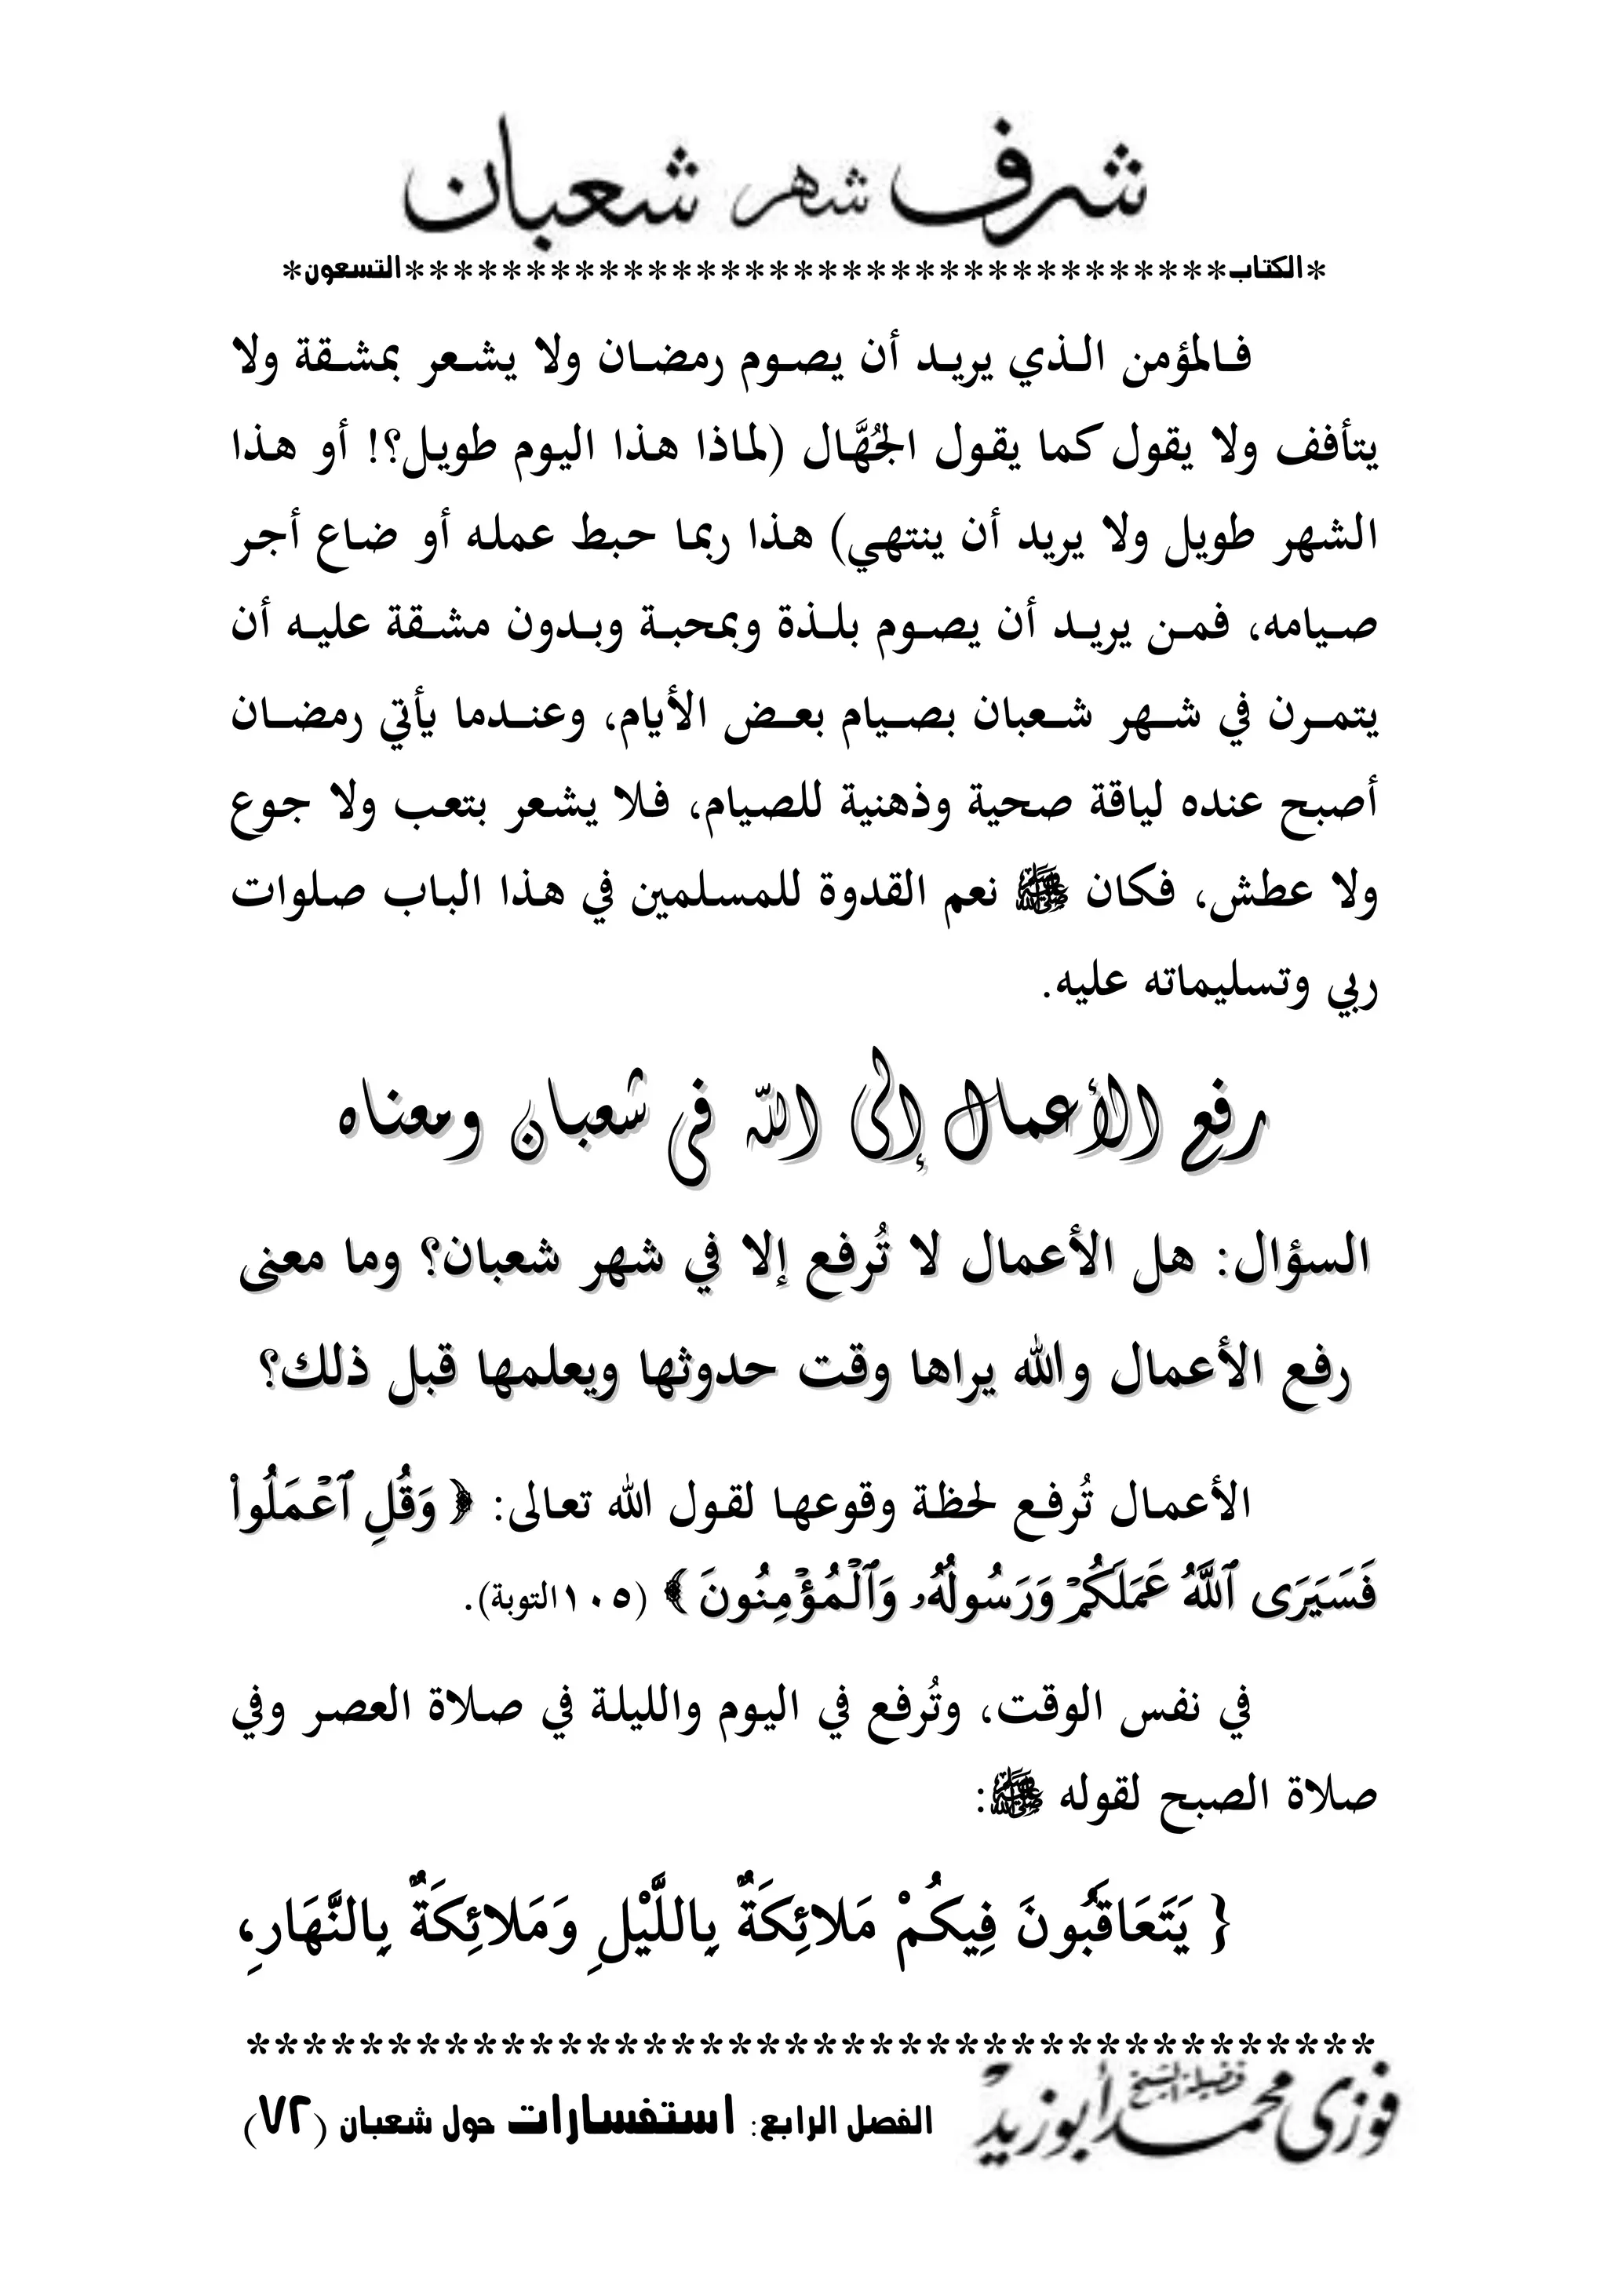 شرف شهر شعبان
*الكتاب**********************************التسعون*
فالمؤمن الذي يريد أن يصوم رمضان ولا يشعر بمشقة ولا
يتأفف ولا يقول كما يقول الجُهَّال (لماذا هذا اليوم طويل؟! أو هذا
الشهر طويل ولا يريد أن ينتهي) هذا ربما حبط عمله أو ضاع أجر
صيامه، فمن يريد أن يصوم بلذة وبمحبة وبدون مشقة عليه أن
يتمرن في شهر شعبان بصيام بعض الأيام، وعندما يأتي رمضان
أصبح عنده لياقة صحية وذهنية للصيام، فلا يشعر بتعب ولا جوع
ولا عطش، فكان ﷺ نعم القدوة للمسلمين في هذا الباب صلوات
ربي وتسليماته عليه.
رفع الأعمال إلى الله فى شعبان ومعناه
السؤال: هل الأعمال لا تُرفع إلا في شهر شعبان؟ وما معنى
رفع الأعمال والله يراها وقت حدوثها ويعلمها قبل ذلك؟
الأعمال تُرفع لحظة وقوعها لقول الله تعالى: ﴿ وَقُلِ ٱعْمَلُوا۟
فَسَيَرَى ٱللَّهُ عَمَلَكُمْ وَرَسُولُهُۥ وَٱلْمُؤْمِنُونَ ﴾ (١٠٥التوبة).
في نفس الوقت، وتُرفع في اليوم والليلة في صلاة العصر وفي
صلاة الصبح لقوله ﷺ:
{ يَتَعَاقَبُونَ فِيكُمْ مَلائِكَةٌ بِاللَّيْلِ وَمَلائِكَةٌ بِالنَّهَارِ،
****************************************
فضيلة الشيخ فوزى محمد أبوزيد
الفصل الرابع: استفسارات حول شعبان (٧٢)